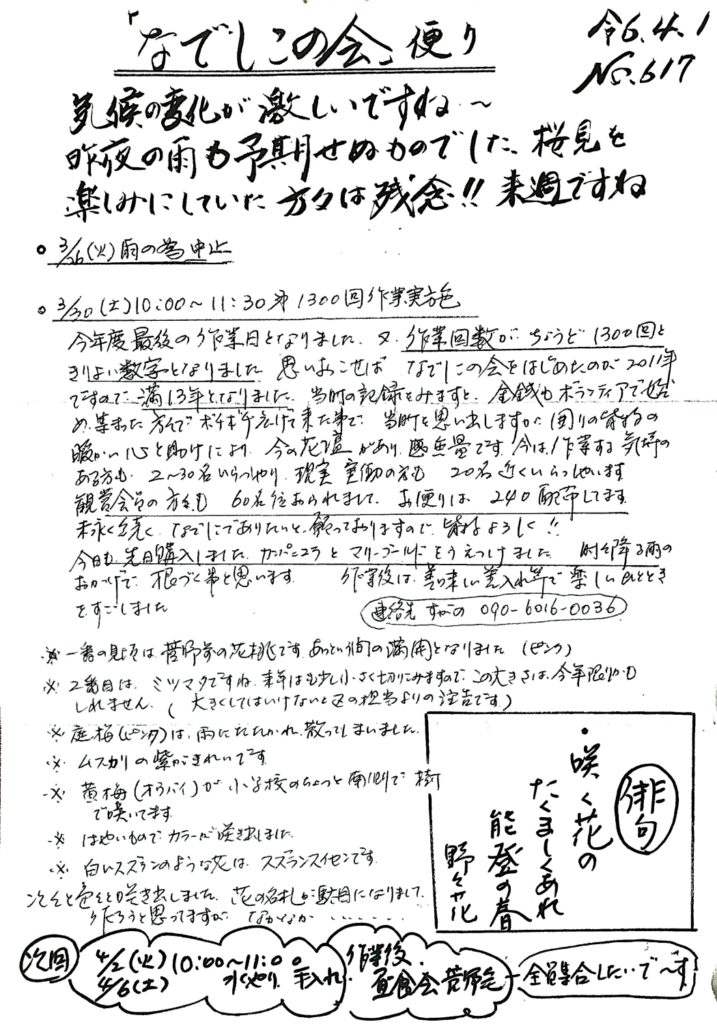 「なでしこの会」便り
令6.4.1
No.617
気候の変化が激しいですね〜
昨夜の雨も予期せぬものでした、桜見を
楽しみにしていた方々は残念!! 来週ですね
○ 3/26(火)雨の為中止
○ 3/30(土)10:00〜11:30 第1300回作業実施
今年度最後の作業日となりました、又、作業回数が、ちょうど1300回と
きりよい数字となりました 思いおこせば なでしこの会をはじめたのが2011年
ですので、満13年となりました、当時の記録をみますと、金銭もボランティアで始
め、集まった方々でボチボチ
来た事で、当時を思い出しますが 周りの皆様の
暖かい心と助けにより、今の花壇があり、感無量です、今は作業する気持の
ある方も、2〜30名いらっしゃり、現実 実働の方も 20名近くいらっしゃいます
観賞会員の方々も 60名位おられました、お便りは、240配布してます
末永く続く、なでしこでありたいと、願っておりますので、皆様よろしく!!
今日も、先日購入しました、カンパニュラとマリーゴールドをうえつけました 時々降る雨の
おかげで、根づく事と思います 作業後は、美味しい差入れ等で楽しいひととき
をすごしました
連絡先 すがの 090-6016-0036
※ 一番の見頃は菅野家の花桃です、あっという間の満開となりました (ピンク)
※ 2番目は、ミツマタですね、来年はもう少し小さく切りこみますので、この大きさは、今年限りかも
しれません、( 大きくしてはいけないと区の担当よりの注告です)
※ 庭梅(ピンク)は、雨にたたかれ、散ってしまいました、
※ ムスカリの紫がきれいです
※ 黄梅(オウバイ)が小学校のちょっと南側で樹
で咲いてます
※ はやいもので、カラーが咲き出しました、
※ 白いスズランのような花は、スズランスイセンです、
つぎつぎと色々と咲き出しました、花の名札が駄目になりまして、
作ろうと思ってますが なかなか……
俳句
・咲く花の
たくましくあれ
能登の春
野々花
次回
4/2(火) 10:00〜11:00
4/6(土) 水やり、手入れ、
作業後、
昼食会菅野宅
全員集合したいで〜す